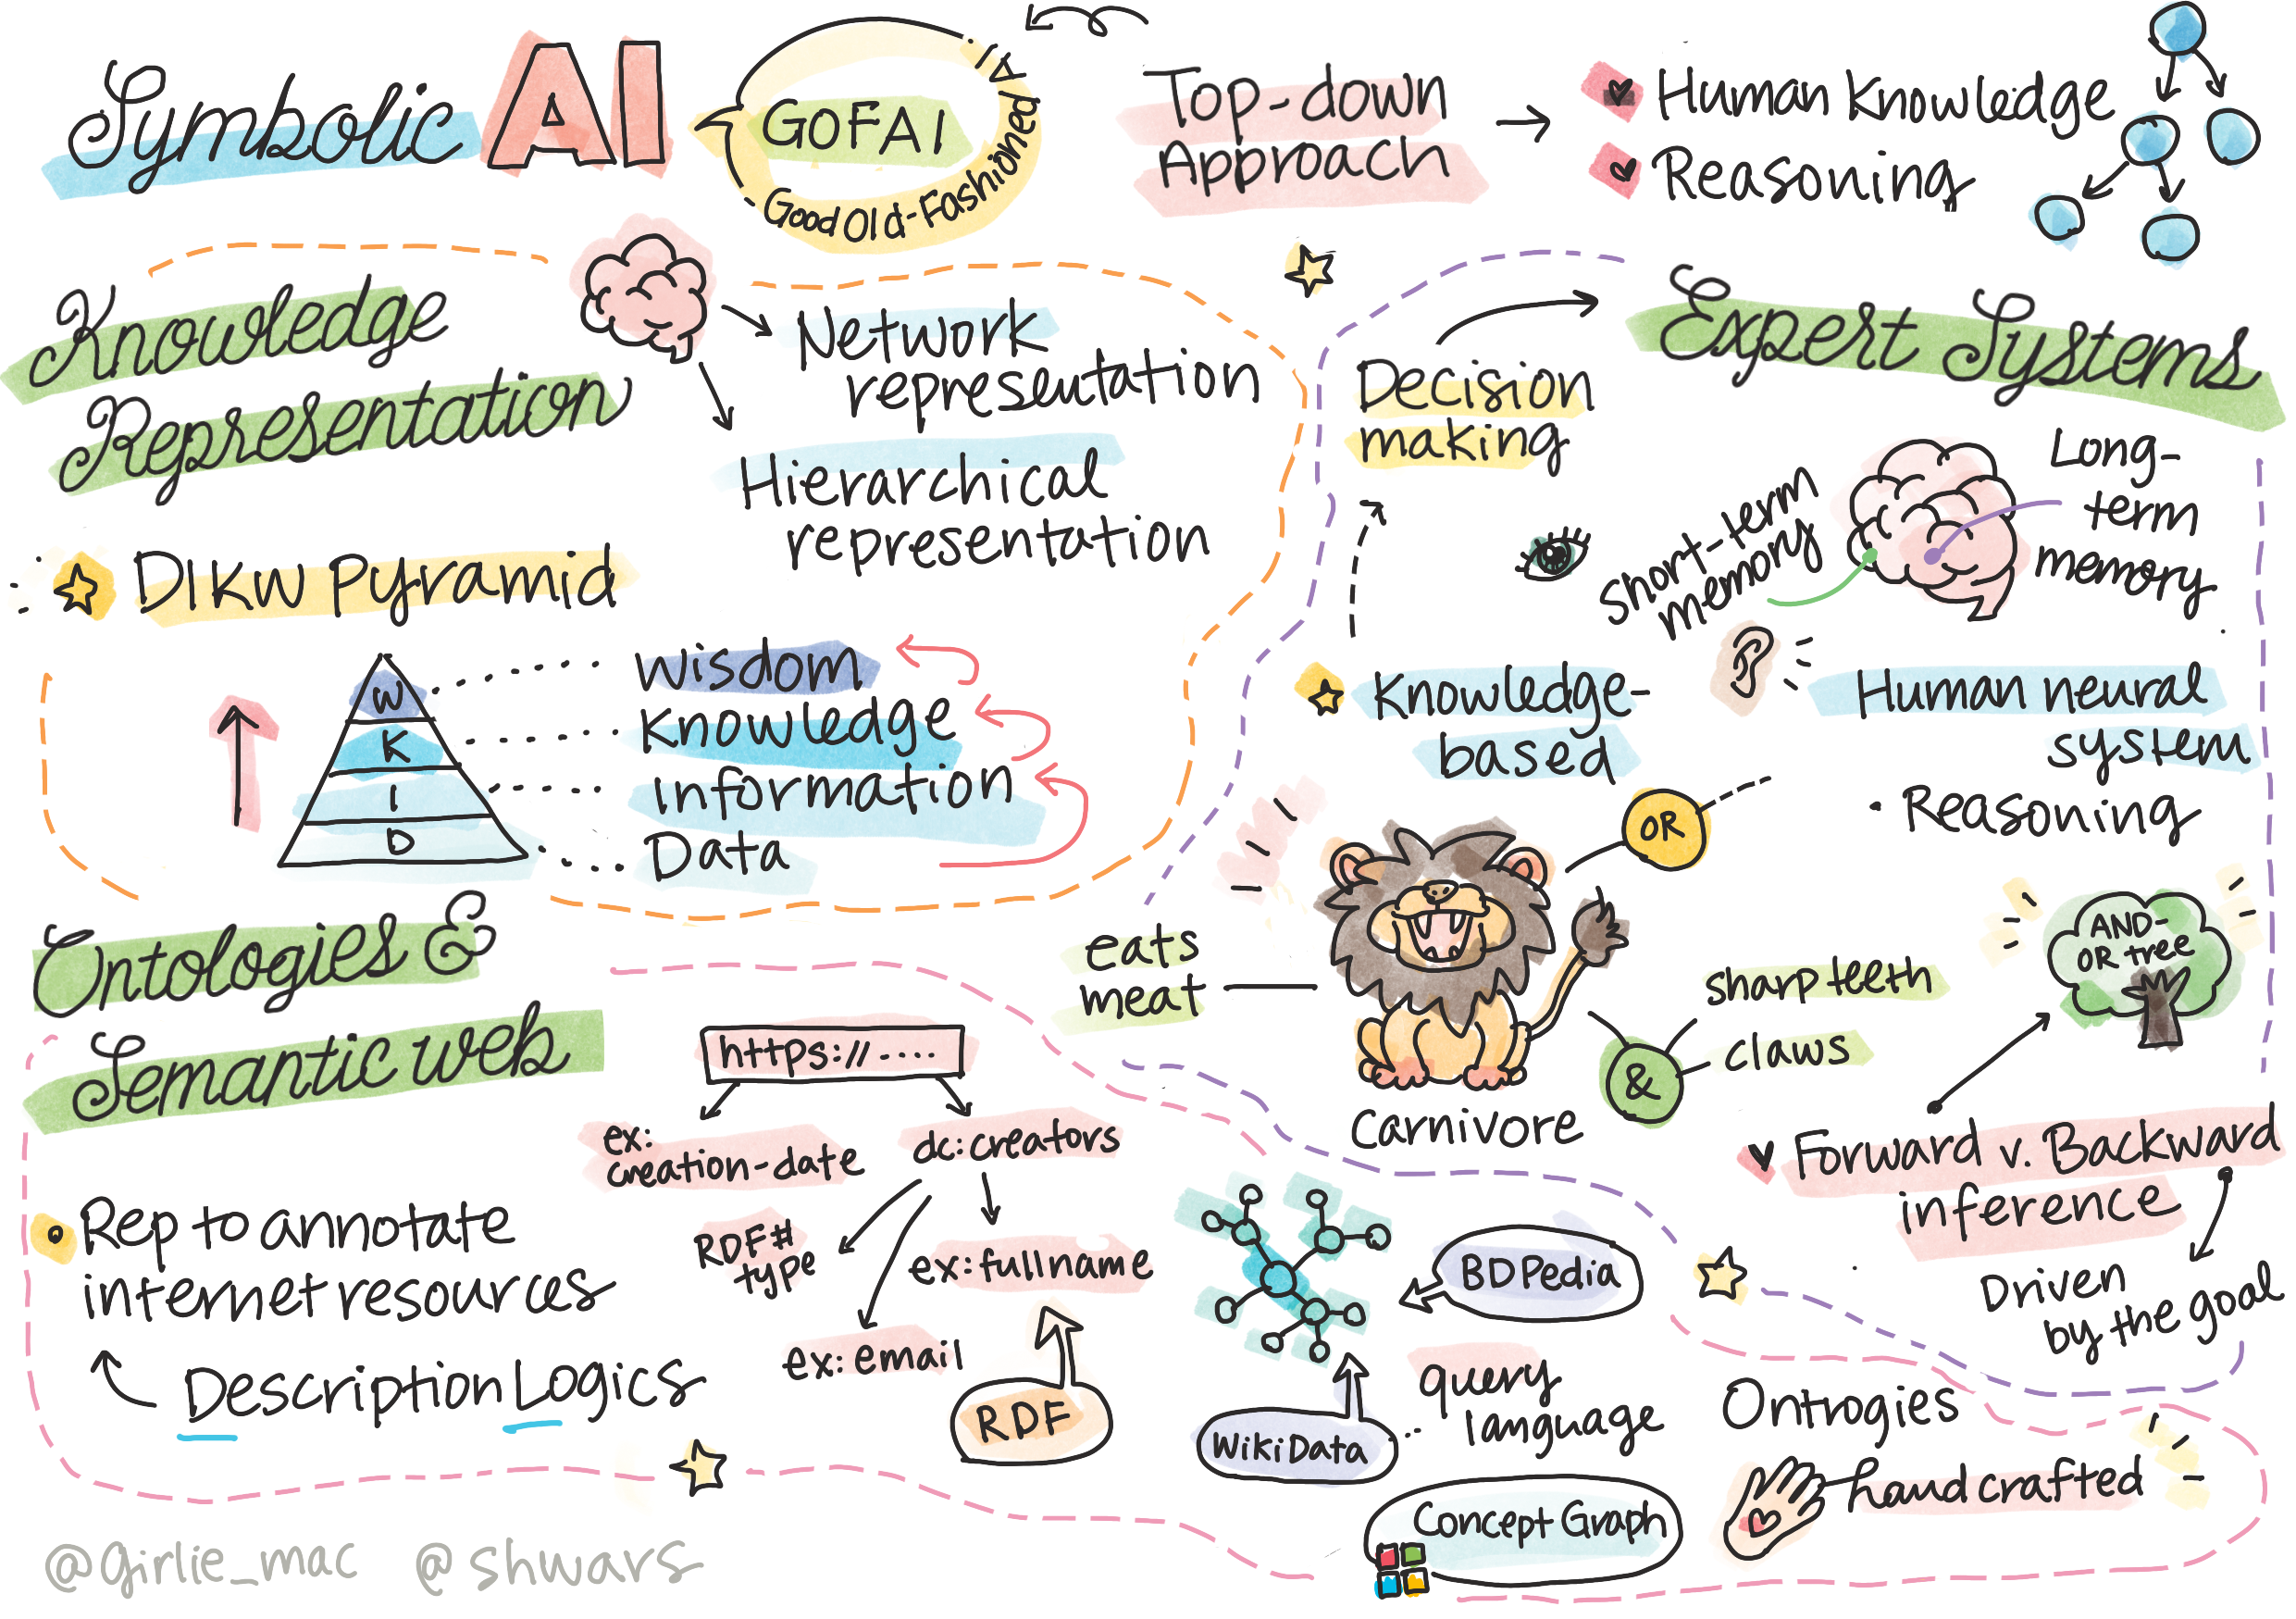 Symbolic AI
GOFAI
Good Old-Fashioned AI
Top-down
Approach
Human Knowledge
Reasoning
Knowledge
Representation
Network
representation
Hierarchical
representation
DIKW Pyramid
W
K
I
D
Wisdom
Knowledge
Information
Data
Expert Systems
Decision
making
Short-term
memory
Long-
term
memory
Knowledge-
based
Human neural
system
• Reasoning
OR
eats
meat
sharp teeth
claws
&
Carnivore
AND-
OR tree
Forward v. Backward
inference
Driven
by the goal
Ontologies &
Semantic web
https://....
ex:
creation-date
dc:creators
RDF#
type
ex:fullname
ex:email
RDF
Rep to annotate
internet resources
Description Logics
BDPedia
WikiData
query
language
Concept Graph
Ontrogies
handcrafted
@girlie_mac @shwars